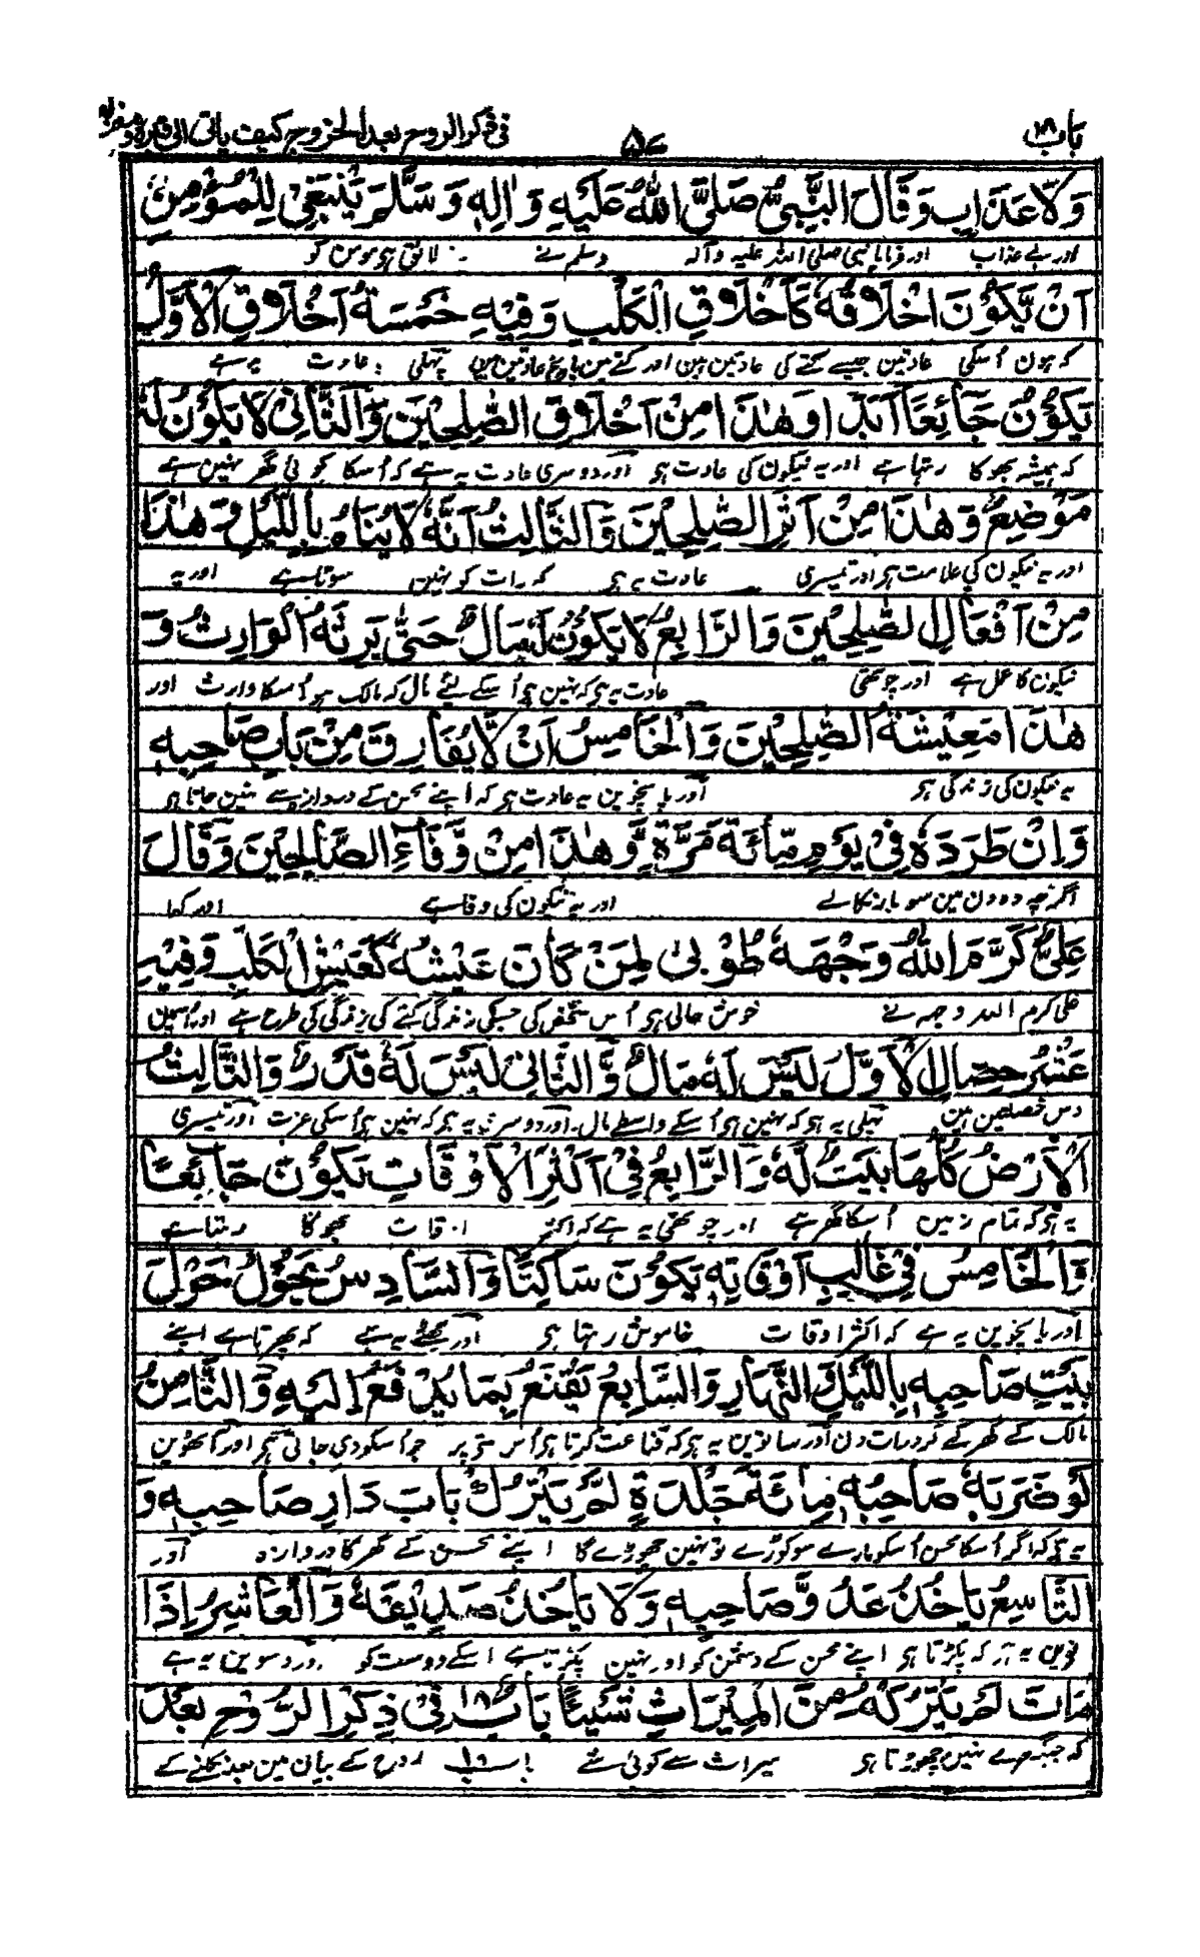 باب ۱۸
۵۷
فی ذکر الروح بعد الخروج کیف یاتی الی قبرہ و
وَلَا عَذَابٍ وَقَالَ النَّبِيُّ صَلَّى اللّٰهُ عَلَيْهِ وَاٰلِهٖ وَسَلَّمَ يَنْبَغِيْ لِلْمُؤْمِنِ
اور بے عذاب اور فرمایا نبی صلی اللہ علیہ وآلہ وسلم نے لائق ہی مومن کو
اَنْ يَّكُوْنَ اَخْلَاقُهٗ كَاَخْلَاقِ الْكَلْبِ وَفِيْهِ خَمْسَةُ اَخْلَاقٍ الْاَوَّلُ
کہ ہون اُسکی عادتین جیسے کتے کی عادتین ہین اور کتے مین پانچ عادتین ہین پہلی عادت یہ ہے
يَكُوْنُ جَائِعًا اَبَدًا وَهٰذَا مِنْ اَخْلَاقِ الصّٰلِحِيْنَ وَالثَّانِيْ لَا يَكُوْنُ لَهٗ
کہ ہمیشہ بھوکا رہتا ہے اور یہ نیکون کی عادت ہی اور دوسری عادت یہ ہے کہ اُسکا کوئی گھر نہین ہے
مَوْضِعٌ وَهٰذَا مِنْ اَثَرِ الصّٰلِحِيْنَ وَالثَّالِثُ اَنَّهٗ لَا يَنَامُ بِاللَّيْلِ وَهٰذَا
اور یہ نیکون کی علامت ہی اور تیسری عادت یہ ہی کہ رات کو نہین سوتا ہے اور یہ
مِنْ اَفْعَالِ الصّٰلِحِيْنَ وَالرَّابِعُ لَا يَكُوْنُ لَهٗ مَالٌ حَتّٰى يَرِثَهُ الْوَارِثُ وَ
نیکون کا عمل ہے اور چوتھی عادت یہ ہی کہ نہین ہی اُسکے لئے مال کہ مالک ہو اُسکا وارث اور
هٰذَا مَعِيْشَةُ الصّٰلِحِيْنَ وَالْخَامِسُ اَنْ لَّا يُفَارِقَ مِنْ بَابِ صَاحِبِهٖ
یہ نیکون کی زندگی ہی اور پانچوین یہ عادت ہی کہ اپنے محسن کے دروازے سے نہین جاتا ہی
وَاِنْ طَرَدَهٗ فِيْ يَوْمٍ مِّائَةَ مَرَّةٍ وَّهٰذَا مِنْ وَّفَاءِ الصَّالِحِيْنَ وَقَالَ
اگرچہ وہ دن مین سو بار نکالے اور یہ نیکون کی وفا ہے اور کہا
عَلِيٌّ كَرَّمَ اللّٰهُ وَجْهَهٗ طُوْبٰى لِمَنْ كَانَ عَيْشُهٗ كَعَيْشِ الْكَلْبِ وَفِيْهِ
علی کرم اللہ وجہہ نے خوش حالی ہی اُس شخص کی جسکی زندگی کتے کی زندگی کی طرح ہے اور اُسمین
عَشْرُ خِصَالٍ الْاَوَّلُ لَيْسَ لَهٗ مَالٌ وَّالثَّانِيْ لَيْسَ لَهٗ قَدْرٌ وَالثَّالِثُ
دس خصلتین ہین پہلی یہ ہی کہ نہین ہی اُسکے واسطے مال اور دوسرے یہ ہی کہ نہین ہی اُسکی عزت اور تیسری
الْاَرْضُ كُلُّهَا بَيْتٌ لَّهٗ وَالرَّابِعُ فِيْ اَكْثَرِ الْاَوْقَاتِ يَكُوْنُ جَائِعًا
یہ ہی کہ تمام زمین اُسکا گھر ہے اور چوتھی یہ ہے کہ اکثر اوقات بھوکا رہتا ہے
وَالْخَامِسُ فِيْ غَالِبِ اَوْقَاتِهٖ يَكُوْنَ سَاكِتًا وَالسَّادِسُ يَحُوْلُ حَوْلَ
اور پانچوین یہ ہے کہ اکثر اوقات خاموش رہتا ہی اور چھٹے یہ ہے کہ پھرتا ہے اپنے
بَيْتِ صَاحِبِهٖ بِاللَّيْلِ وَالنَّهَارِ وَالسَّابِعُ يَقْنَعُ بِمَا يُدْفَعُ اِلَيْهِ وَالثَّامِنُ
مالک کے گھر کے گرد رات دن اور ساتوین یہ ہی کہ قناعت کرتا ہی اُس پر جو اُسکو دی جاتی ہی اور آٹھوین
لَوْ ضَرَبَهٗ صَاحِبُهٗ مِائَةَ جَلْدَةٍ لَمْ يَتْرُكْ بَابَ دَارِ صَاحِبِهٖ وَ
یہ ہی کہ اگر اُسکا محسن اُسکو مارے سو کوڑے تو نہین چھوڑے گا اپنے محسن کے گھر کا دروازہ اور
التَّاسِعُ يَاْخُذُ عَدُوَّ صَاحِبِهٖ وَلَا يَاْخُذُ صَدِيْقَهٗ وَالْعَاشِرُ اِذَا
نوین یہ کہ پکڑتا ہی اپنے محسن کے دشمن کو اور نہین پکڑتا ہے اسکے دوست کو اور دسوین یہ ہے
مَاتَ لَمْ يَتْرُكْ مِنَ الْمِيْرَاثِ شَيْئًا بَابٌ ۱۸ فِيْ ذِكْرِ الرُّوْحِ بَعْدَ
کہ جب مرے نہین چھوڑتا ہی میراث سے کوئی شے باب ۱۸ روح کے بیان مین بعد نکلنے کے